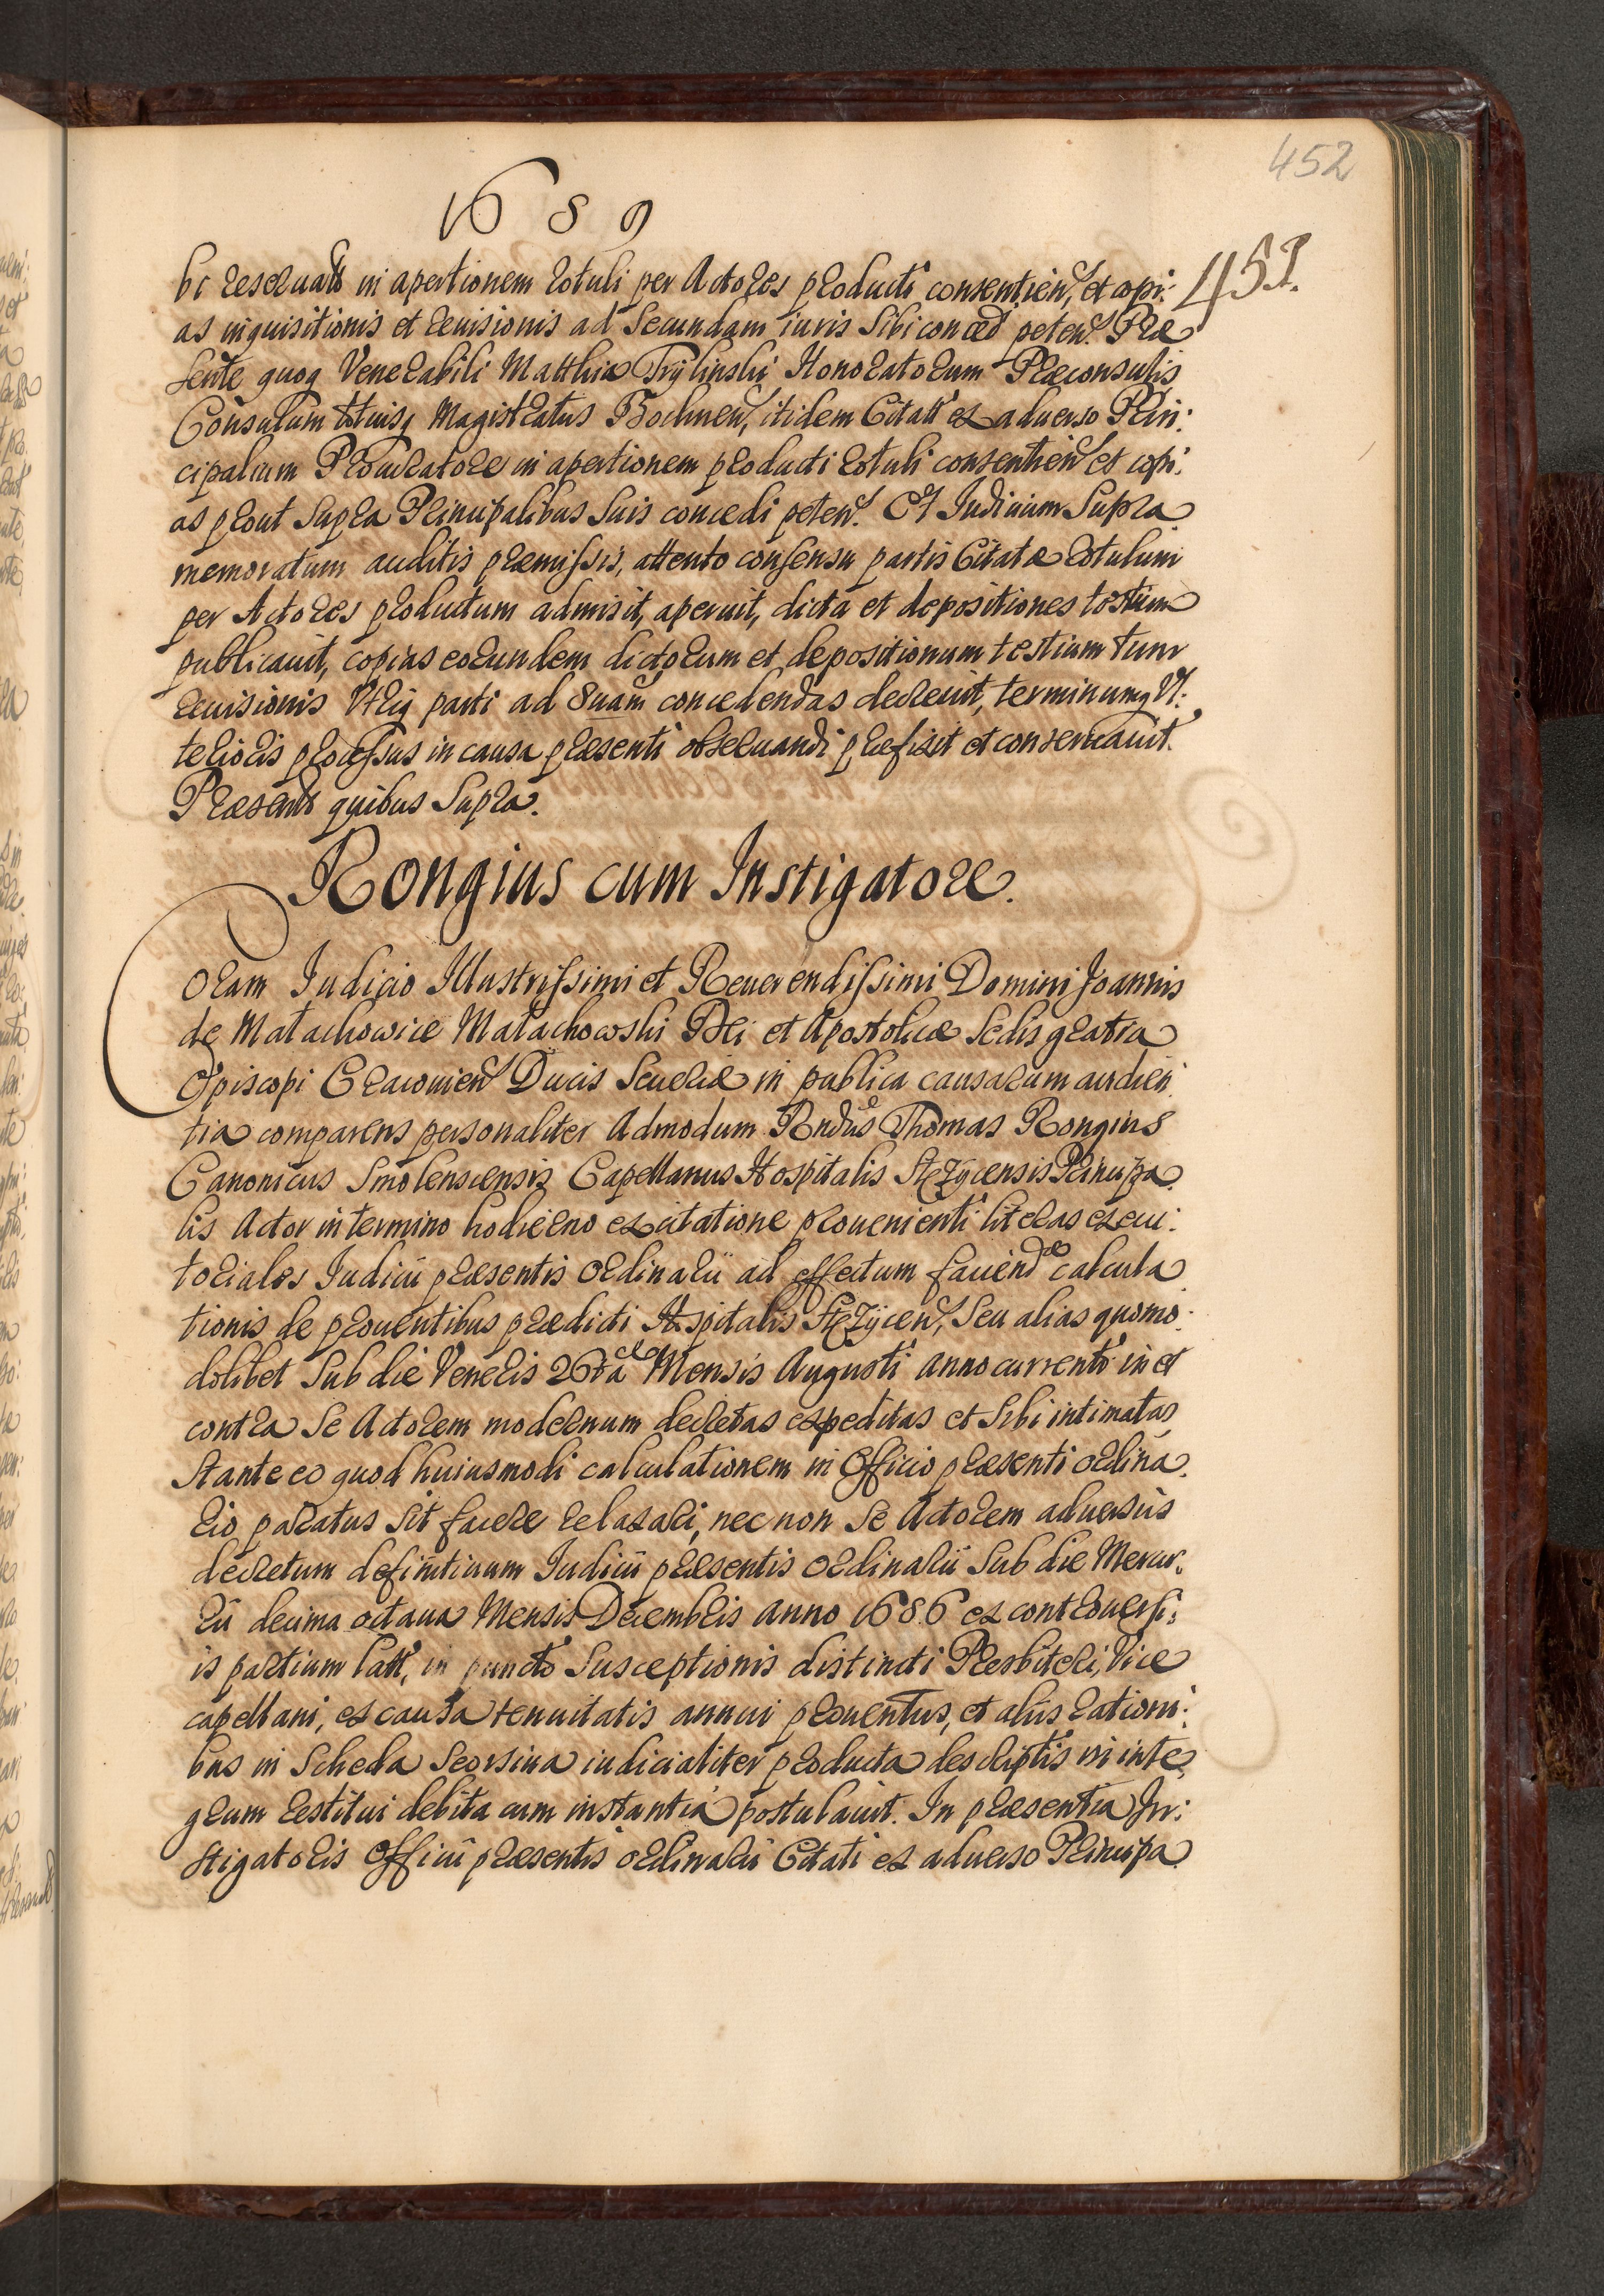 452
1689
451.
bi reseruatt in apertionem rotuli per Actores producti consentien, et copi:
as inquisitionis et reuisionis ad Secundam iuris Sibi conced peten. Præ
sente quoq Venerabili Matthia Tryliński, Honoratorum Præconsulis
Consulum totiusq Magistratus Bochnen, itidem Citatt ex aduerso Prin:
cipalium Procuratore in apertionem producti rotuli consentien et copi:
as prout Supra Principalibus Suis concedi peten. Et Iudicium Supra
memoratum auditis præmissis, attento consensu partis Citatæ rotulum
per Actores productum admisit, aperuit, dicta et depositiones testium
publicauit, copias eorundem dictorum et depositionum testium tum
reuisionis Vtriq parti ad 2uam concedendas decreuit, terminumq Vl:
terioris processus in causa præsenti obseruandi præfixit et conseruauit.
Præsentt quibus Supra.
Rongius cum Instigatore.
Coram Iudicio Illustrissimi et Reuerendissimi Domini Joannis
de Małachowice Małachowski Dei et Apostolicæ Sedis gratia
Episcopi Cracouien Ducis Seueriæ in publica causarum audien:
tia comparens personaliter Admodum Rndus Thomas Rongius
Canonicus Smolenscensis Capellanus Hospitalis Stęzycensis Principa
lis Actor in termino hodierno ex citatione prouenienti literas execu:
toriales Iudicii præsentis Ordinarii ad effectum faciendæ calcula
tionis de prouentibus prædicti Hospitalis Stęzycen, Seu alias quomo:
dolibet Sub die Veneris 26ta Mensis Augusti Anno currenti in et
contra Se Actorem modernum decretas expeditas et Sibi intimatas,
Stante eo quod huiusmodi calculationem in Officio præsenti ordina
rio paratus Sit facere relaxari, nec non Se Actorem aduersus
decretum definitiuum Iudicii præsentis Ordinarii Sub die Mercu:
rii decima octaua Mensis Decembris Anno 1686 ex controuersi:
is partium latt, in puncto Susceptionis distincti Presbiteri, Vice
capellani, ex causa tenuitatis annui prouentus, et aliis rationi:
bus in Scheda Seorsiua iudicialiter producta descriptis in inte
grum restitui debita cum instantia postulauit. In præsentia In:
stigatoris Officii præsentis ordinarii Citati ex aduerso Principa